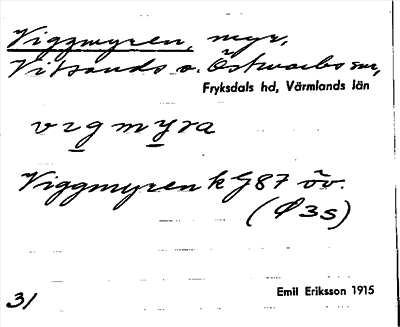 Viggmyren, myr,
Vitsands o. Östmarks snr,
Fryksdals hd, Värmlands län
vigmyra
Viggmyren k G87 öv.
(Ø 35)
31
Emil Eriksson 1915